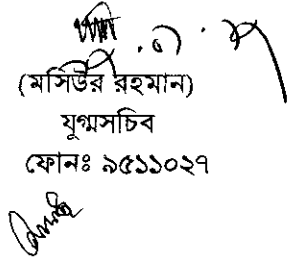 (মসিউর রহমান)
যুগ্মসচিব
ফোনঃ ৯৫১১০২৭